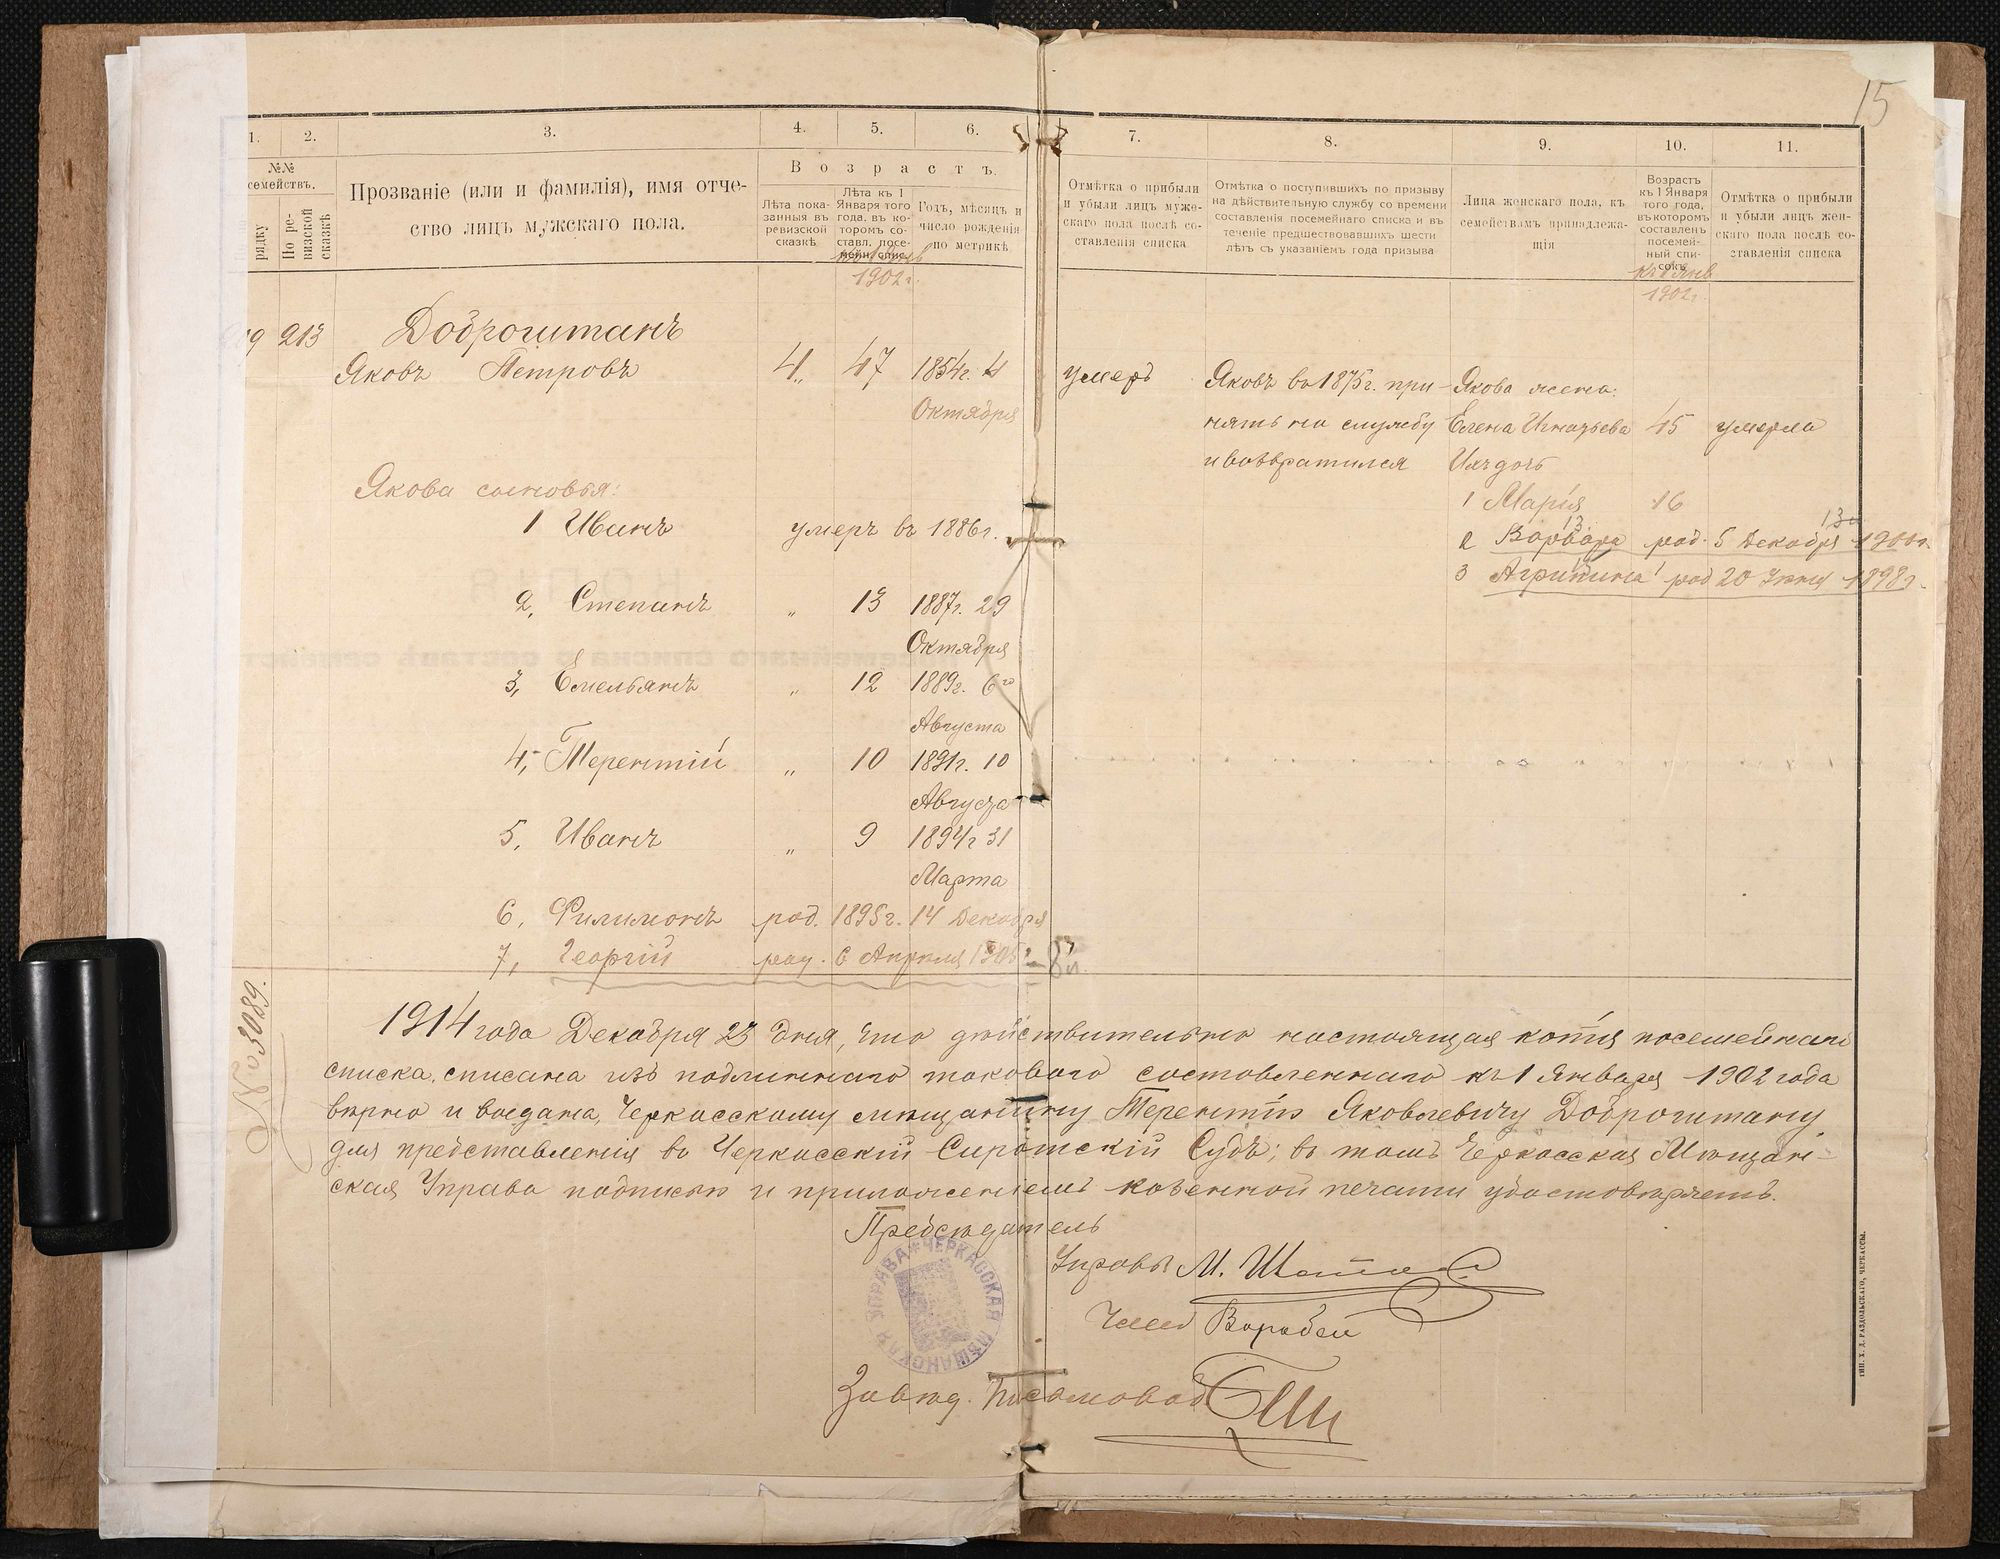 15
1. 2. 3. 4. 5. 6. 7. 8. 9. 10. 11.
№№ семействъ.
рядку
По ревизской сказкѣ
Прозваніе (или и фамилія), имя отче-
ство лицъ мужскаго пола.
Возрастъ.
Лѣта пока-
занныя въ
ревизской
сказкѣ
Лѣта къ 1
Января того
года, въ ко-
торомъ со-
ставл. посе-
мейн. спис.
Годъ, мѣсяцъ и
число рожденія
по метрикѣ
Отмѣтка о прибыли
и убыли лицъ муже-
скаго пола послѣ со-
ставленія списка
Отмѣтка о поступившихъ по призыву
на дѣйствительную службу со времени
составленія посемейнаго списка и въ
теченіе предшествовавшихъ шести
лѣтъ съ указаніемъ года призыва
Лица женскаго пола, къ
семействамъ принадлежа-
щія
Возрастъ
къ 1 Января
того года,
въ которомъ
составленъ
посемей-
ный спи-
сокъ
Отмѣтка о прибыли
и убыли лицъ жен-
скаго пола послѣ со-
ставленія списка
1902г.
къ 1 Янв
1902г.
213 Доброштанъ
Яковъ Петровъ 4 „ 47 1854г. 4
Октября
умеръ
Яковъ въ 1875г. при-
нятъ на службу
и возвратился
Якова жена:
Елена Игнатьева 45 умерла
Ихъ дочь
1 Марія 16
2 Варвара 13 род. 5 Декабря 1900г.
3 Агрипина род 20 Іюня 1898г.
Якова сыновья:
1 Иванъ умеръ въ 1886г.
2, Степанъ „ 13 1887г. 29
Октября
3, Емельянъ „ 12 1889г. 6го
Августа
4, Терентій „ 10 1891г. 10
Августа
5, Иванъ „ 9 1894г 31
Марта
6, Филимонъ род. 1895г. 14 Декабря
7, Георгій род. 6 Апреля
№ 3089.
1914 года Декабря 23 дня, что действительно настоящая копія посемейнаго
списка, списана изъ подлиннаго таковаго составленнаго къ 1 Января 1902 года
вѣрно и выдана, Черкасскому мѣщанину Терентію Яковлевичу Доброштану
для представленія въ Черкасскій Сиротскій Судъ; въ томъ Черкасская Мѣщан-
ская Управа подписью и приложеніемъ казенной печати удостовѣряетъ.
Предсѣдатель
Управы М.
Членъ Воробей
Завѣд. Письмовод.
ЧЕРКАССКАЯ МѢЩАНСКАЯ УПРАВА
ТИП. Х. Д. РАЗДОЛЬСКАГО, ЧЕРКАССЫ.